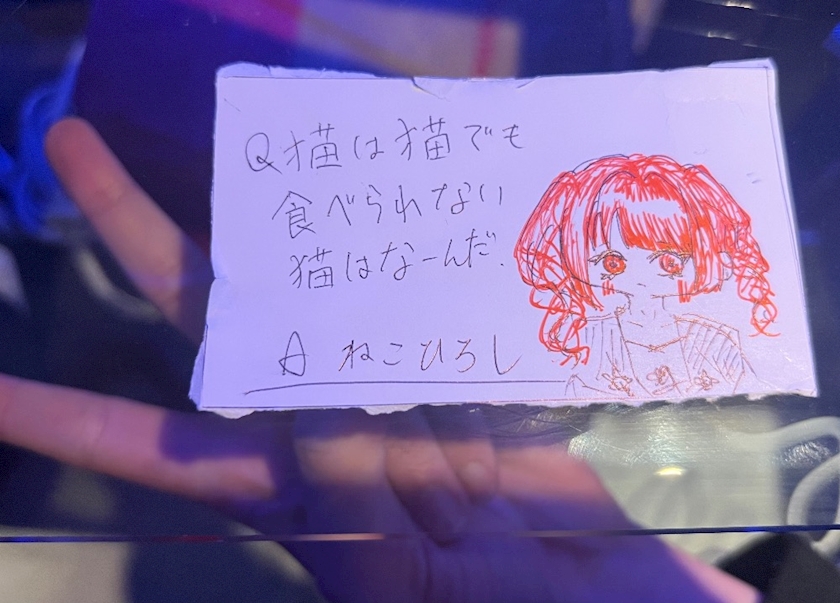 Q猫は猫でも
食べられない
猫はなーんだ.
A ねこひろし